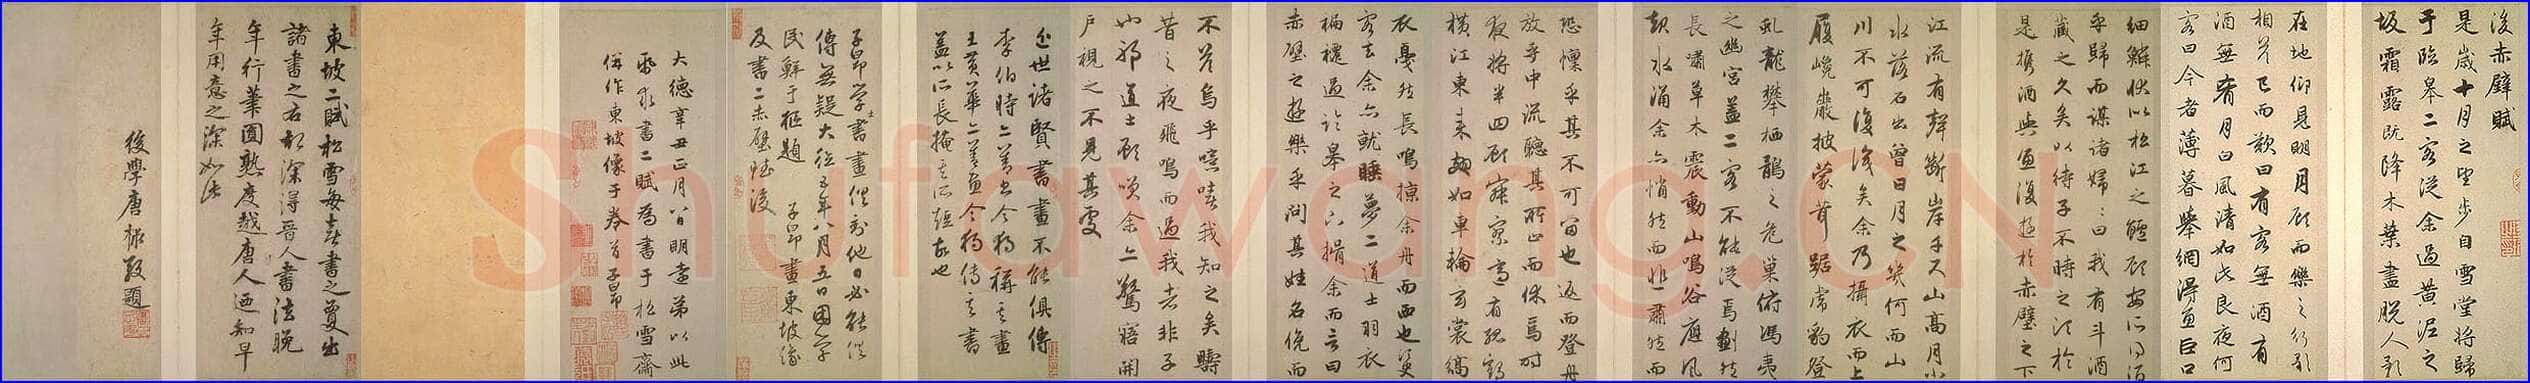 後赤壁賦
是歲十月之望步自雪堂將歸
于臨皋二客從余過黃泥之
坂霜露既降木葉盡脫人影
在地仰見明月顧而樂之行歌
相答已而歎曰有客無酒有
酒無肴月白風清如此良夜何
客曰今者薄暮舉網得魚巨口
細鱗狀似松江之鱸顧安所得酒
乎歸而謀諸婦婦曰我有斗酒
藏之久矣以待子不時之須於
是攜酒與魚復遊於赤壁之下
江流有聲斷岸千尺山高月小
水落石出曾日月之幾何而山
川不可復識矣余乃攝衣而上
履巉巖披蒙茸踞虎豹登
虬龍攀栖鶻之危巢俯馮夷
之幽宮蓋二客不能從焉劃然
長嘯草木震動山鳴谷應風
起水涌余亦悄然而悲肅然而
恐凜乎其不可留也返而登舟
放乎中流聽其所止而休焉時
夜將半四顧寂寥適有孤鶴
橫江東來翅如車輪玄裳縞
衣戛然長鳴掠余舟而西也須臾
客去余亦就睡夢二道士羽衣
翩躚過臨皋之下揖余而言曰
赤壁之遊樂乎問其姓名俛而
不答烏乎噫嘻我知之矣疇
昔之夜飛鳴而過我者非子
也邪道士顧笑余亦驚寤開
戶視之不見其處
近世諸賢書畫不能俱傳
李伯時亦善書今獨稱其畫
王黃華亦善畫今獨傳其書
蓋以所長掩其所短故也
子昂學士書畫俱到他日必能俱
傳無疑大德五年八月五日困學
民鮮于樞題 子昂畫東坡像
及書二赤壁賦後
大德辛丑正月八日明遠弟以此
紙求書二賦為書于松雪齋
併作東坡像于卷首子昂
東坡二賦松雪每喜書之蔓出
諸書之右
深得晉人書法晚
年行筆圓熟度越唐人迺知早
年用意之深如此
後學唐棣敬題
Shufawang.CN